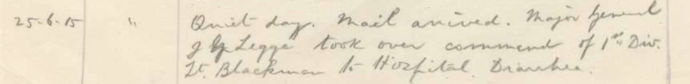 25-6-15 " Quiet day. Mail arrived. Major General
J G Legge took over command of 1st Div.
Lt. Blackman to Hospital. Diarrhea.